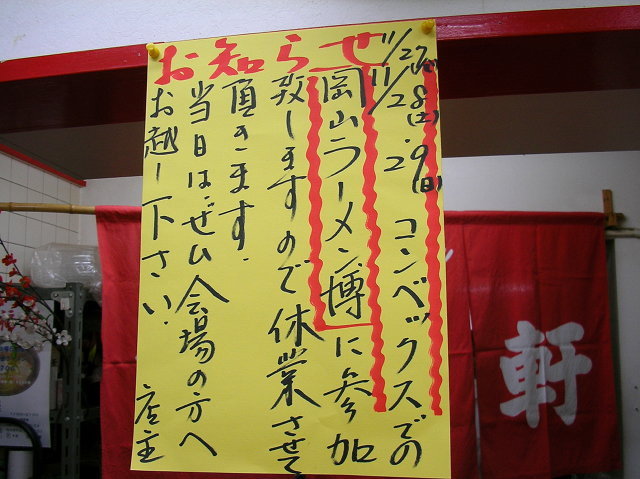 お知らせ
11/27(金)
11/28(土)・29(日) コンベックスでの
岡山ラーメン博に参加
致しますので休業させて
頂きます.
当日は、ぜひ会場の方へ
お越し下さい.
店主
軒